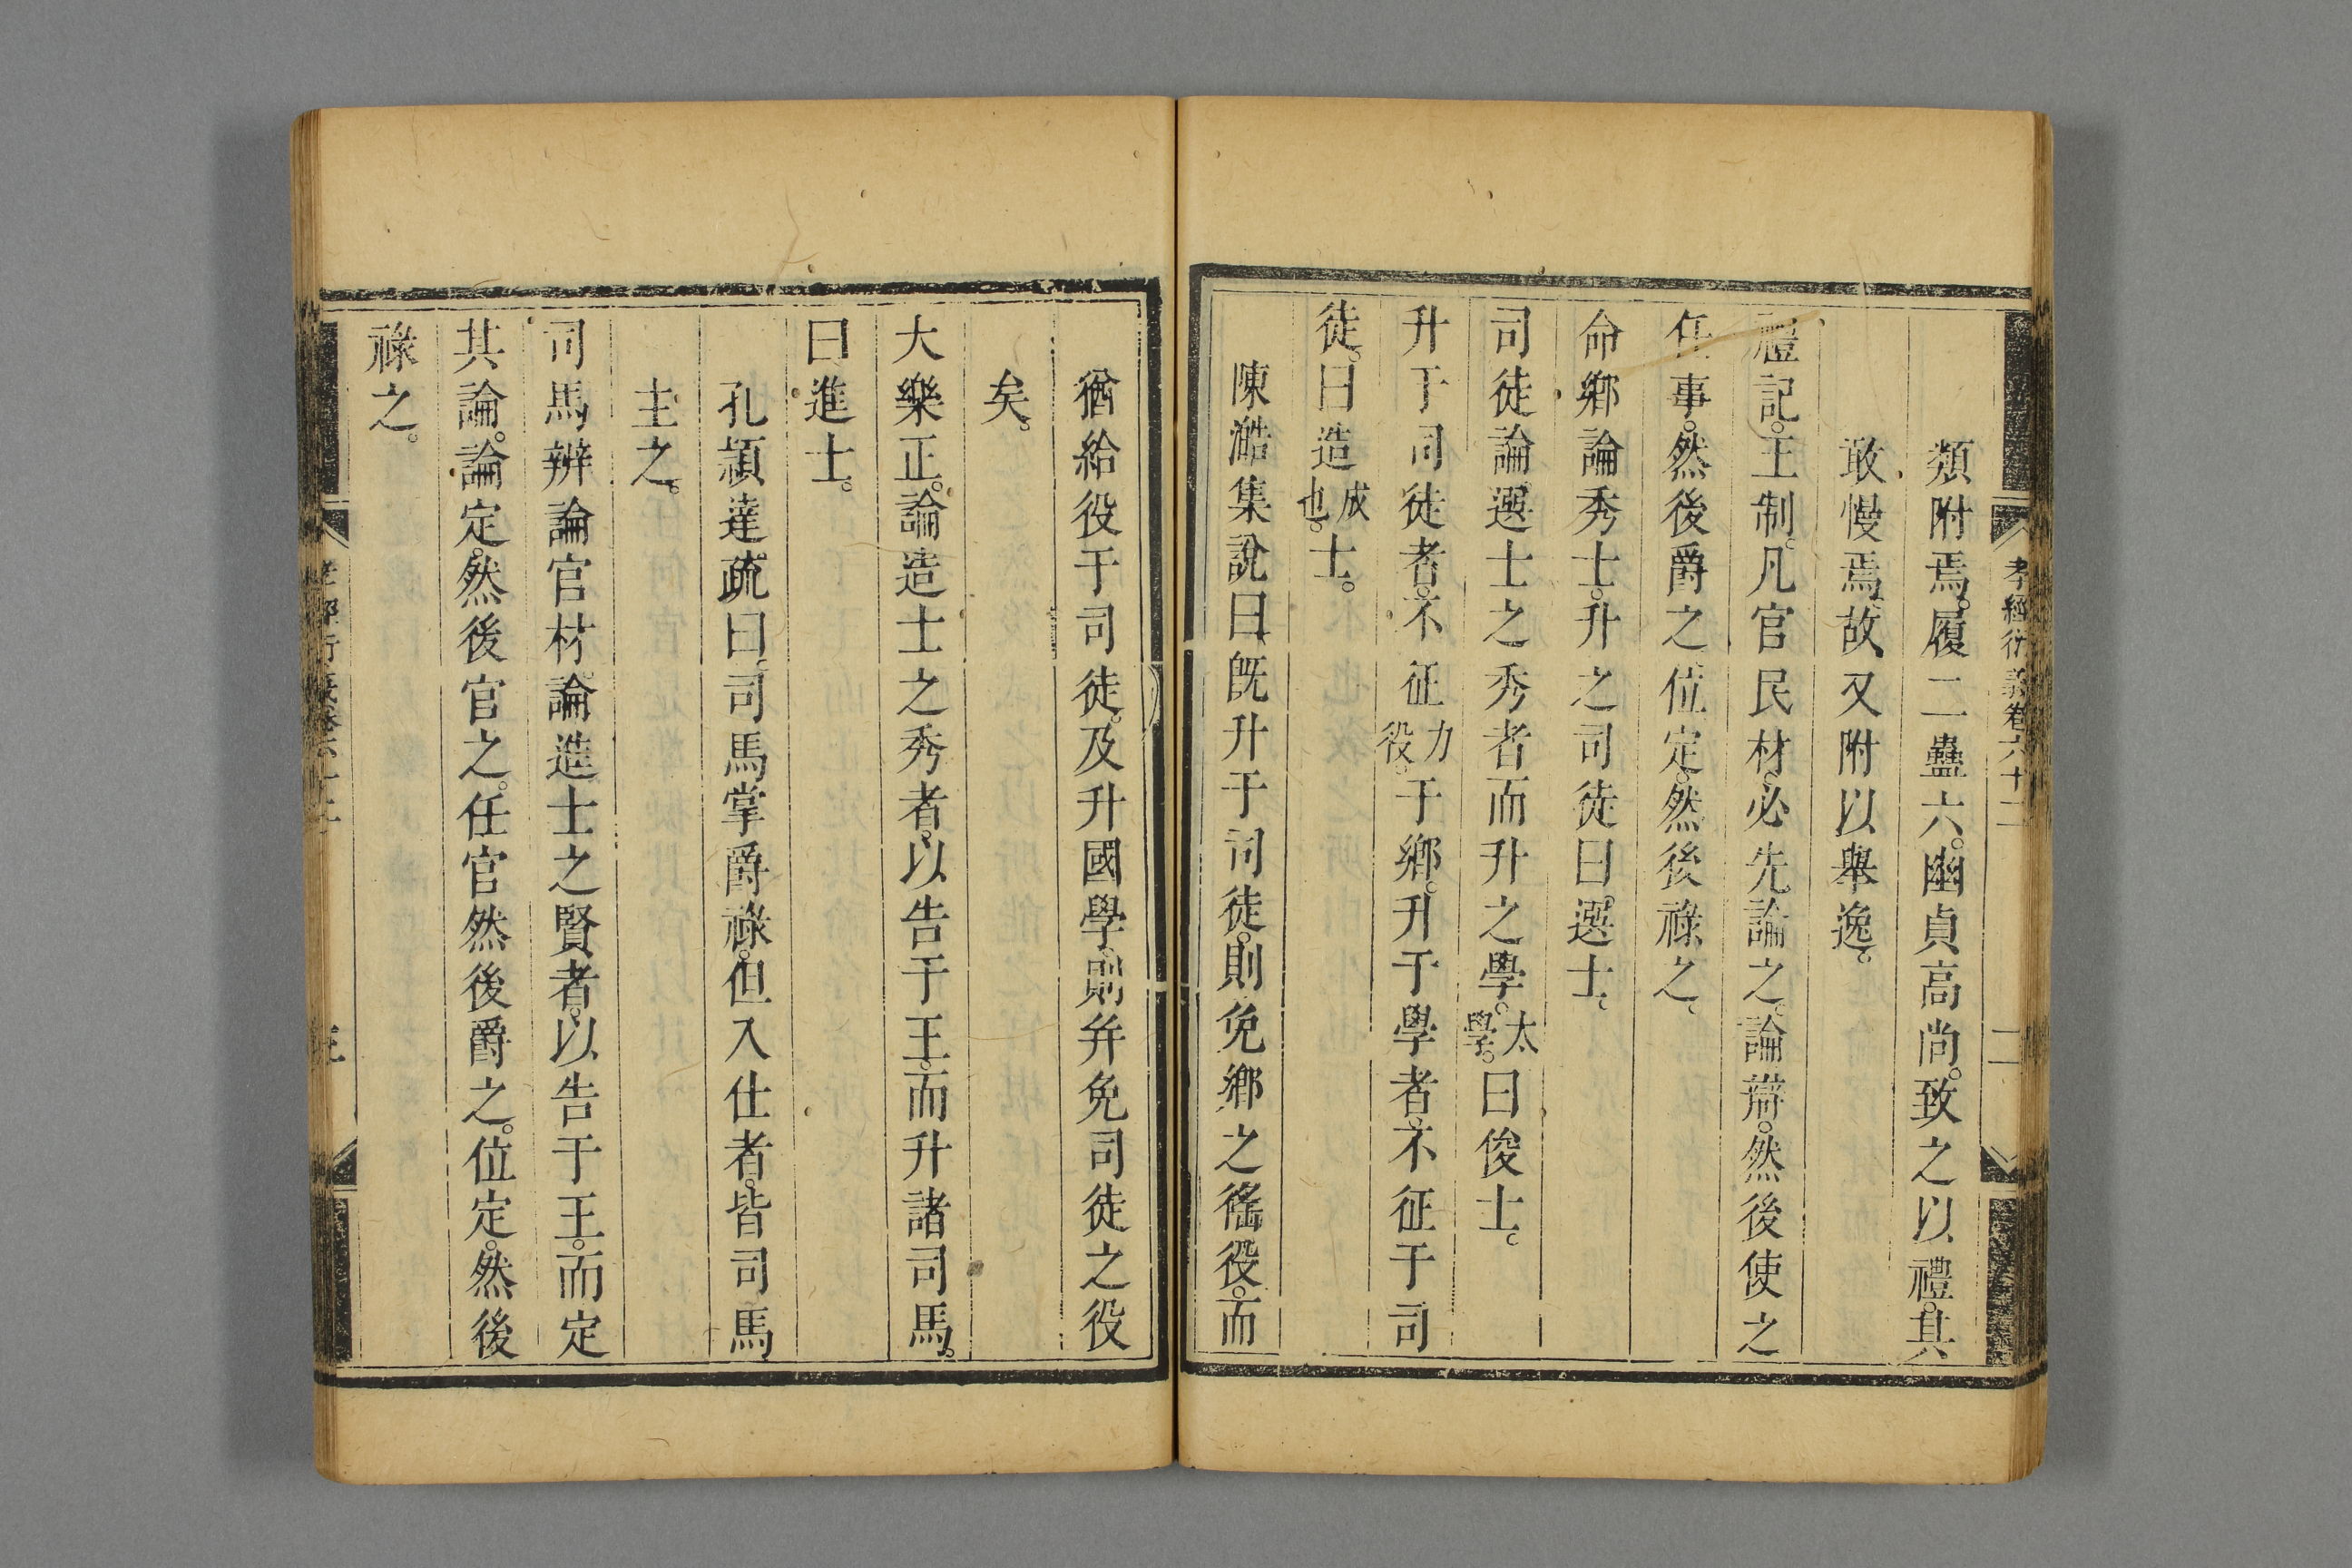 孝經衍義卷六十二
二
類附焉。履二蠱六。幽貞高尚。致之以禮。其
敢慢焉。故又附以舉逸。
禮記。王制。凡官民材。必先論之。論辯。然後使之
任事。然後爵之。位定。然後祿之。
命鄉論秀士。升之司徒。曰選士。
司徒論選士之秀者而升之學。太學。曰俊士。
升于司徒者。不征力役。于鄉。升于學者。不征于司
徒。曰造成也。士。
陳澔集說曰。旣升于司徒。則免鄉之徭役。而
猶給役于司徒。及升國學。則并免司徒之役
矣。
大樂正。論造士之秀者。以告于王。而升諸司馬。
曰進士。
孔頴達疏曰。司馬掌爵祿。但入仕者。皆司馬
主之。
司馬辨論官材。論造士之賢者。以告于王。而定
其論。論定。然後官之。任官然後爵之。位定。然後
祿之。